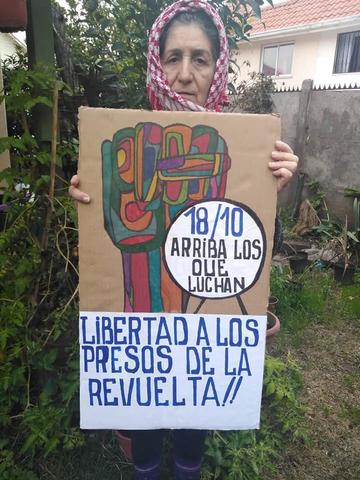 18/10
ARRIBA LOS
QUE
LUCHAN
LIBERTAD A LOS
PRESOS DE LA
REVUELTA!!